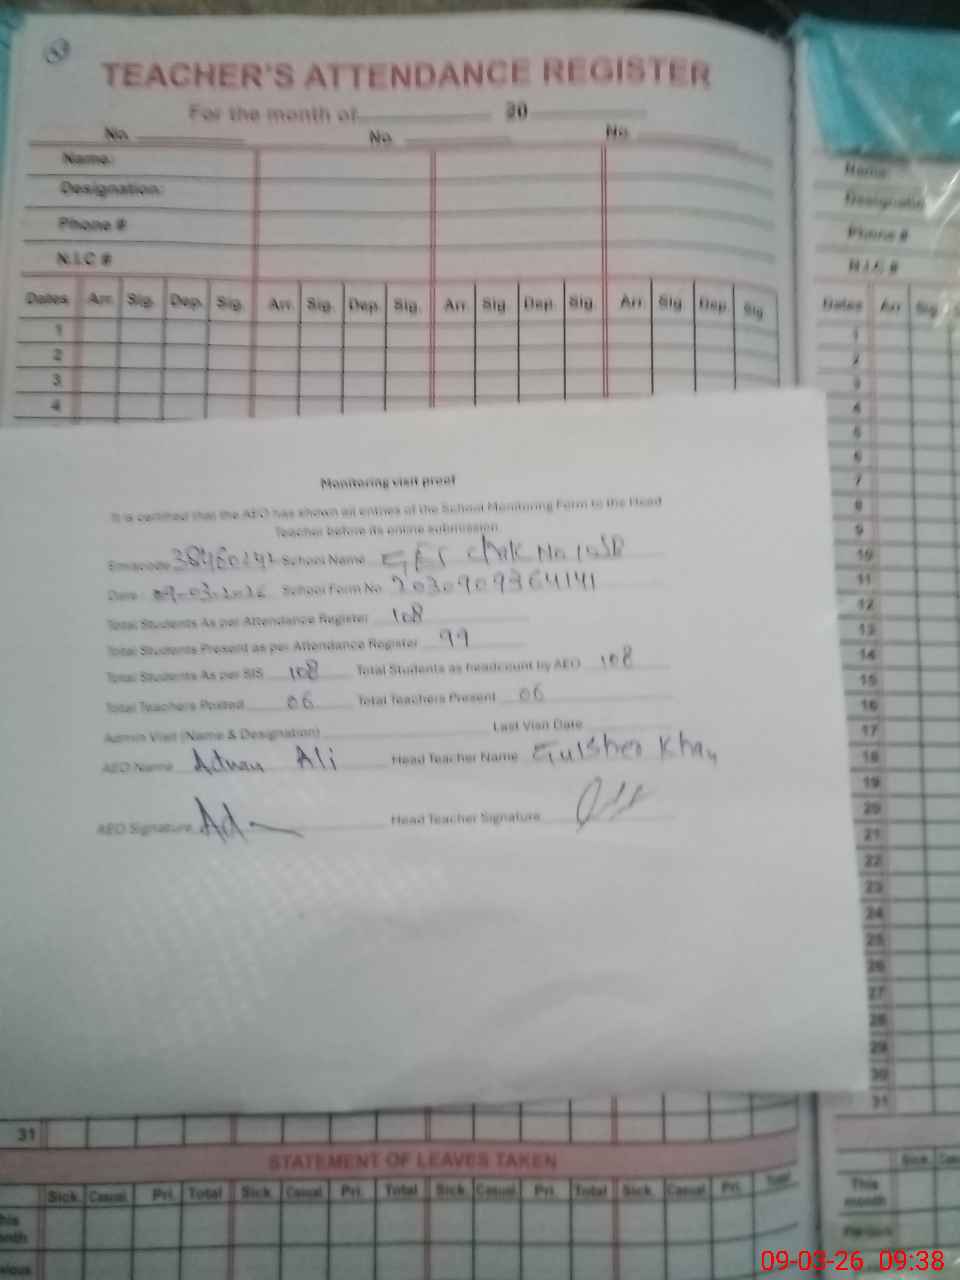 53
TEACHER'S ATTENDANCE REGISTER
For the month of 20
No. No. No.
Name:
Designation:
Phone #
N.I.C #
Dates Arr. Sig. Dep. Sig. Arr. Sig. Dep. Sig. Arr. Sig. Dep. Sig. Arr. Sig. Dep. Sig.
1
2
3
4
Monitoring visit proof
It is certified that the AEO has shown all entries of the School Monitoring Form to the Head
Teacher before its online submission.
Emiscode School Name GES Chak No
Date 09-03-2026 School Form No 2030909364141
Total Students As per Attendance Register 108
Total Students Present as per Attendance Register 99
Total Students As per SIS 108 Total Students as headcount by AEO 108
Total Teachers Posted 06 Total Teachers Present 06
Admin Visit (Name & Designation) Last Visit Date
AEO Name Adnan Ali Head Teacher Name Gulsher Khan
AEO Signature Head Teacher Signature
31
STATEMENT OF LEAVES TAKEN
Sick. Casual. Pri. Total Sick. Casual. Pri. Total Sick. Casual. Pri. Total Sick. Casual. Pri. Total
Name:
Phone #
N.I.C #
Dates Arr. Sig.
1
2
3
4
5
6
7
8
9
10
11
12
13
14
15
16
17
18
19
20
21
22
23
24
25
26
27
28
29
30
31
Sick.
This
month
09-03-26 09:38